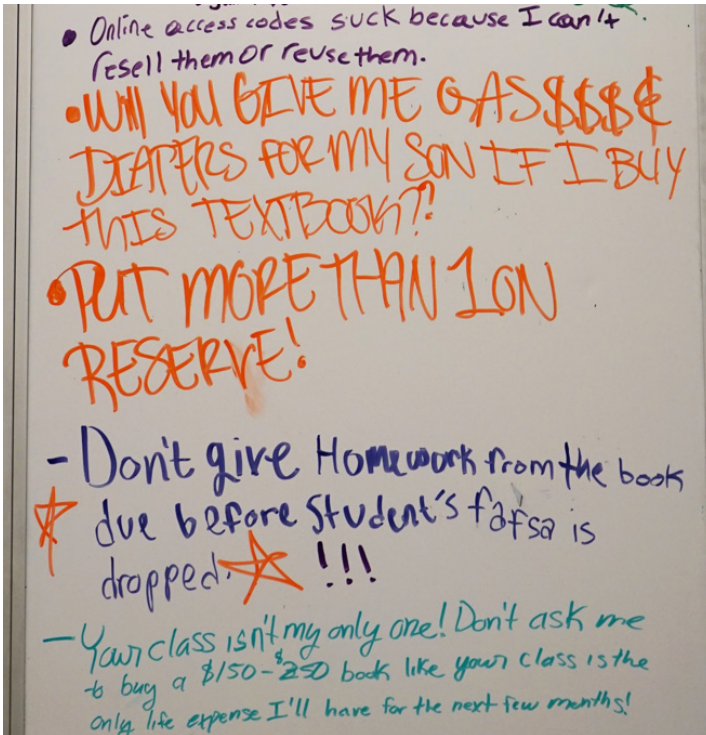 • Online access codes suck because I can't
resell them or reuse them.
• Will YOU GIVE ME GAS $$$ &
DIAPERS FOR MY SON IF I BUY
THIS TEXTBOOK??
• PUT MORE THAN 1 ON
RESERVE!
- Don't give Homework from the book
due before Student's fafsa is
dropped. !!!
- Your class isn't my only one! Don't ask me
to buy a $150-$250 book like your class is the
only life expense I'll have for the next few months!